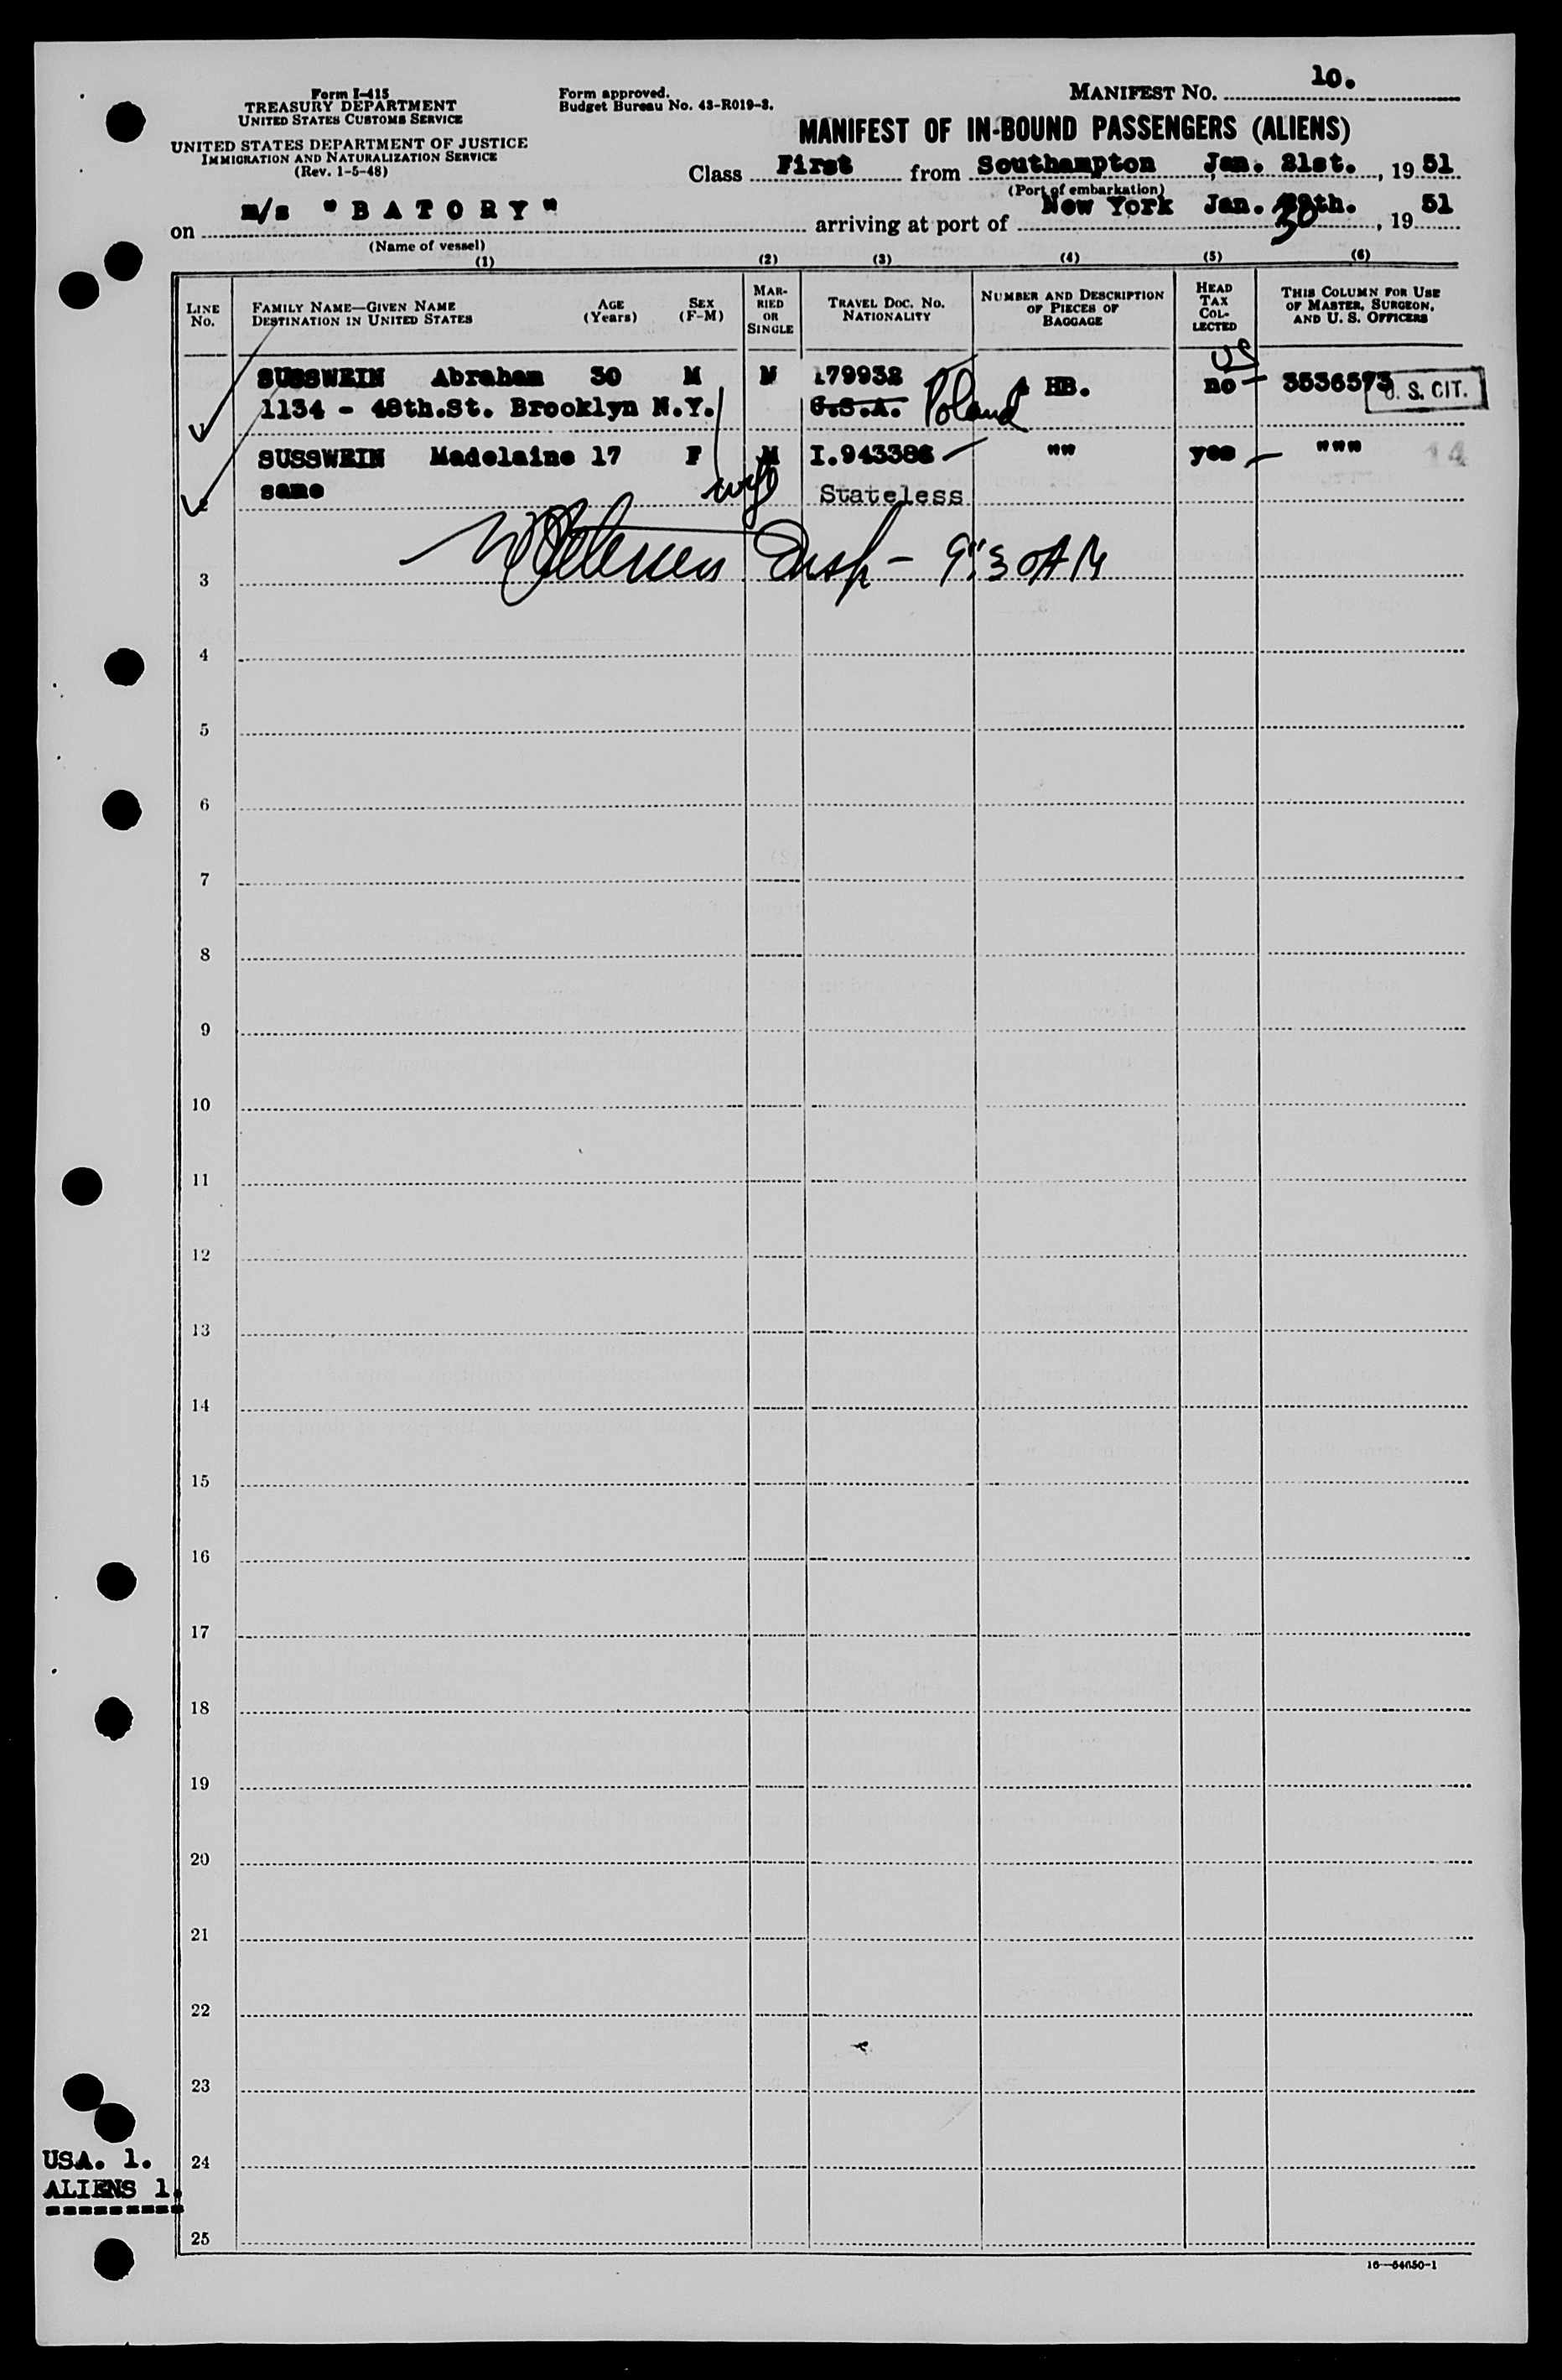 Form I-415
TREASURY DEPARTMENT
UNITED STATES CUSTOMS SERVICE
UNITED STATES DEPARTMENT OF JUSTICE
IMMIGRATION AND NATURALIZATION SERVICE
(Rev. 1-5-48)
Form approved.
Budget Bureau No. 43-R019-3.
MANIFEST NO. 10.
MANIFEST OF IN-BOUND PASSENGERS (ALIENS)
Class First from Southampton Jan. 21st., 19 51
(Port of embarkation)
on m/s "BATORY" arriving at port of New York Jan. 30 th., 19 51
(Name of vessel)
(1) (2) (3) (4) (5) (6)
LINE No. FAMILY NAME—GIVEN NAME DESTINATION IN UNITED STATES AGE (Years) SEX (F-M) MARRIED OR SINGLE TRAVEL DOC. NO. NATIONALITY NUMBER AND DESCRIPTION OF PIECES OF BAGGAGE HEAD TAX COLLECTED THIS COLUMN FOR USE OF MASTER, SURGEON, AND U. S. OFFICERS
US
SUSSWEIN Abraham 30 M M 179938 HB. no — 3536573 U. S. CIT.
1134 - 48th.St. Brooklyn N.Y. U.S.A. Poland
SUSSWEIN Madelaine 17 F M I.943386 — "" yes — """ 14
same wife Stateless
3 Insp - 9:30 AM
4
5
6
7
8
9
10
11
12
13
14
15
16
17
18
19
20
21
22
23
24
25
USA. 1.
ALIENS 1.
16—54650-1